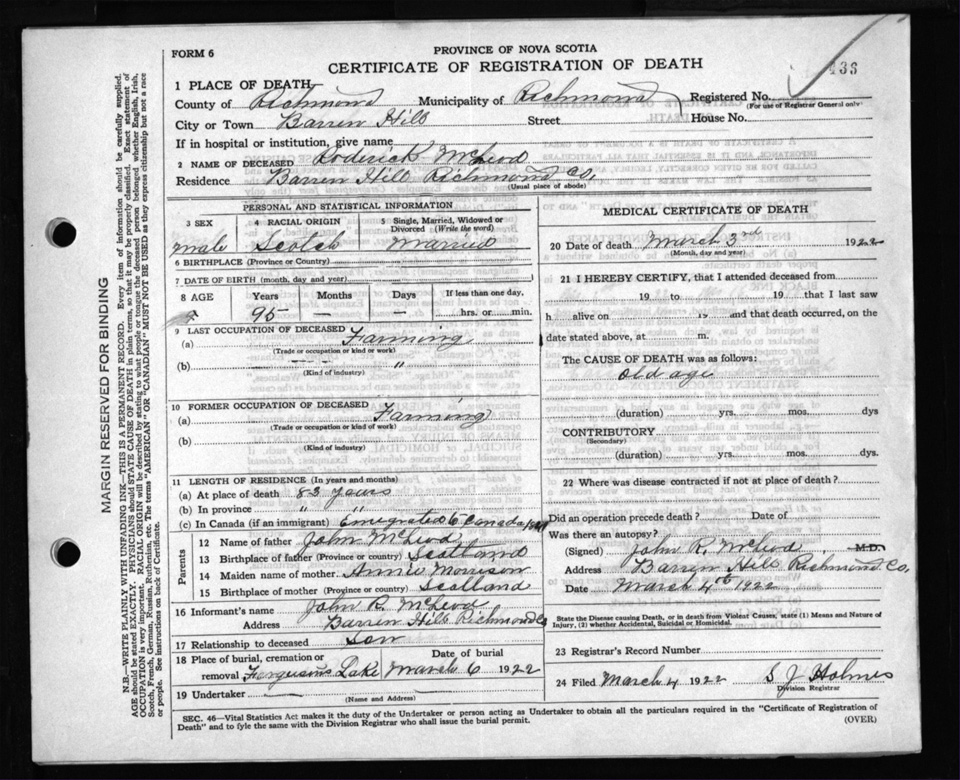 PROVINCE OF NOVA SCOTIA
FORM 6
CERTIFICATE OF REGISTRATION OF DEATH
436
1 PLACE OF DEATH
County of Richmond Municipality of Richmond Registered No.
(For use of Registrar General only)
City or Town Barren Hill Street House No.
If in hospital or institution, give name
2 NAME OF DECEASED Roderick McLeod
Residence Barren Hill Richmond Co.
(Usual place of abode)
PERSONAL AND STATISTICAL INFORMATION
3 SEX 4 RACIAL ORIGIN 5 Single, Married, Widowed or Divorced (Write the word)
male Scotch married
6 BIRTHPLACE (Province or Country)
7 DATE OF BIRTH (month, day and year)
8 AGE Years Months Days If less than one day,
95 — — hrs. or min.
9 LAST OCCUPATION OF DECEASED
(a) Farming
(Trade or occupation or kind or work)
(b) — — — "
(Kind of industry)
10 FORMER OCCUPATION OF DECEASED
(a) Farming
(Trade or occupation or kind or work)
(b)
(Kind of industry)
11 LENGTH OF RESIDENCE (In years and months)
(a) At place of death 83 years
(b) In province " "
(c) In Canada (if an immigrant) Emigrated to Canada
Parents
12 Name of father John McLeod
13 Birthplace of father (Province or country) Scotland
14 Maiden name of mother Annie Morrison
15 Birthplace of mother (Province or country) Scotland
16 Informant's name John R. McLeod
Address Barren Hill Richmond Co
17 Relationship to deceased Son
18 Place of burial, cremation or removal Date of burial
Fergusons Lake March 6 1922
19 Undertaker — —
(Name and Address)
MEDICAL CERTIFICATE OF DEATH
20 Date of death March 3rd 1922
(Month, day and year)
21 I HEREBY CERTIFY, that I attended deceased from
19 to 19 that I last saw
h alive on 19 and that death occurred, on the
date stated above, at m.
The CAUSE OF DEATH was as follows:
Old age
(duration) yrs. mos. dys
CONTRIBUTORY
(Secondary)
(duration) yrs. mos. dys.
22 Where was disease contracted if not at place of death?
Did an operation precede death? Date of
Was there an autopsy?
(Signed) John R. McLeod M.D.
Address Barren Hill Richmond Co,
Date March 4th 1922
State the Disease causing Death, or in death from Violent Causes, state (1) Means and Nature of
Injury, (2) whether Accidental, Suicidal or Homicidal.
23 Registrar's Record Number
24 Filed March 4 1922 S J Holmes
Division Registrar
SEC. 46—Vital Statistics Act makes it the duty of the Undertaker or person acting as Undertaker to obtain all the particulars required in the "Certificate of Registration of
Death" and to fyle the same with the Division Registrar who shall issue the burial permit.
(OVER)
MARGIN RESERVED FOR BINDING
N.B.—WRITE PLAINLY WITH UNFADING INK—THIS IS A PERMANENT RECORD. Every item of information should be carefully supplied.
AGE should be stated EXACTLY. PHYSICIANS should STATE CAUSE OF DEATH in plain terms, so that it may be properly classified. Exact statement of
OCCUPATION is very important. RACIAL ORIGIN will be described by stating to what people or tongue the deceased person belonged whether English, Irish,
Scotch, French, German, Russian, Ruthenian, etc. The terms "AMERICAN" OR "CANADIAN" MUST NOT BE USED as they express citizenship but not a race
or people. See instructions on back of Certificate.